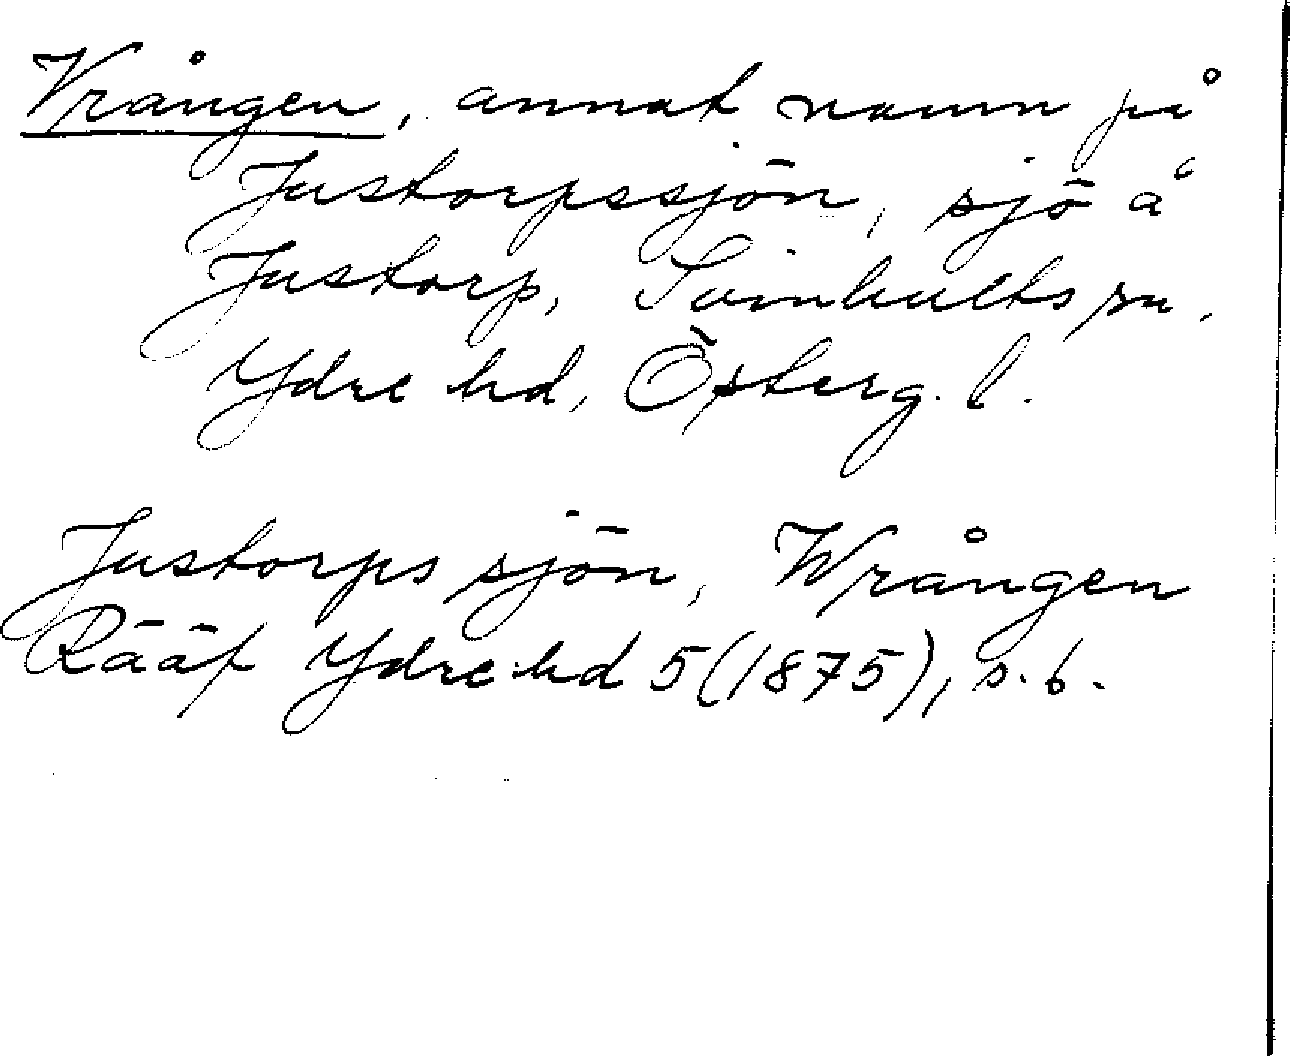 Vrången, annat namn på
Justorpssjön, sjö å
Justorp, Svinhults sn,
Ydre hd, Österg. l.
Justorps sjön, Wrången
Rääf Ydre hd 5(1875), s. 6.